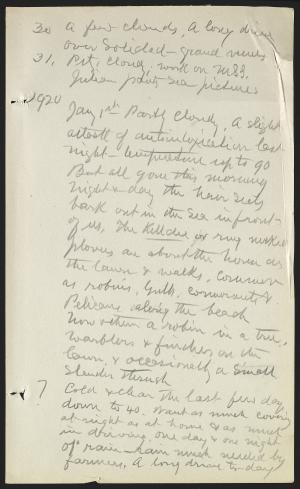 30 A few clouds. A long drive
over Soledad – grand views
31, Pt. cloudy. work on MSS.
Julian paints sea pictures
1920
Jany 1st Partly cloudy. A slight
attack of autointoxication last
night – temperature up to 90
But all gone this morning
Night & day the hair seals
bark out in the sea in front
of us. The Killdee or ring necked
plovers are about the house on
the lawn & walks, common
as robins. Gulls, cormorants &
Pelicans along the beach
Now & then a robin in a tree,
warblers & finches on the
lawn, & occasionally a small
slender thrush
7 Cold & clear the last few days
down to 40. Want as much covering
at night as at home & as much
in driving. one day & one night
of rain – rain much needed by
farmers. A long drive to-day